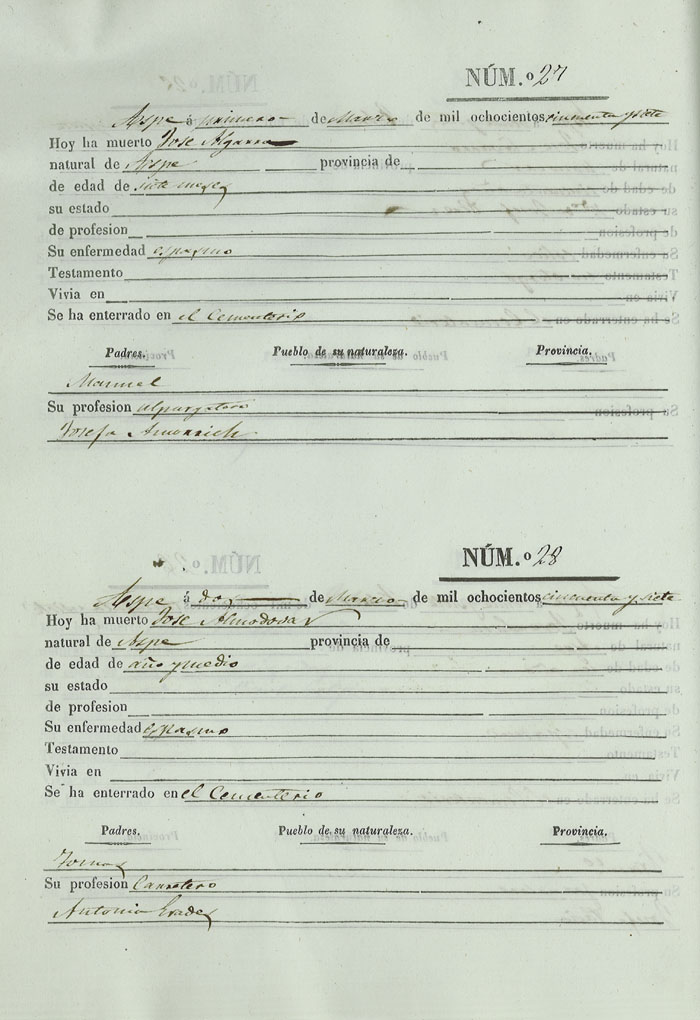 NÚM.º 27
Aspe á primero de Marzo de mil ochocientos cincuenta y siete
Hoy ha muerto Jose Algarra
natural de Aspe provincia de
de edad de siete meses
su estado
de profesion
Su enfermedad espasmo
Testamento
Vivia en
Se ha enterrado en el Cementerio
Padres. Pueblo de su naturaleza. Provincia.
Manuel
Su profesion alpargatero
Josefa Amorrich
NÚM.º 28
Aspe á dos de Marzo de mil ochocientos cincuenta y siete
Hoy ha muerto Jose Almodovar
natural de Aspe provincia de
de edad de año y medio
su estado
de profesion
Su enfermedad espasmo
Testamento
Vivia en
Se ha enterrado en el Cementerio
Padres. Pueblo de su naturaleza. Provincia.
Tomas
Su profesion Carretero
Antonia